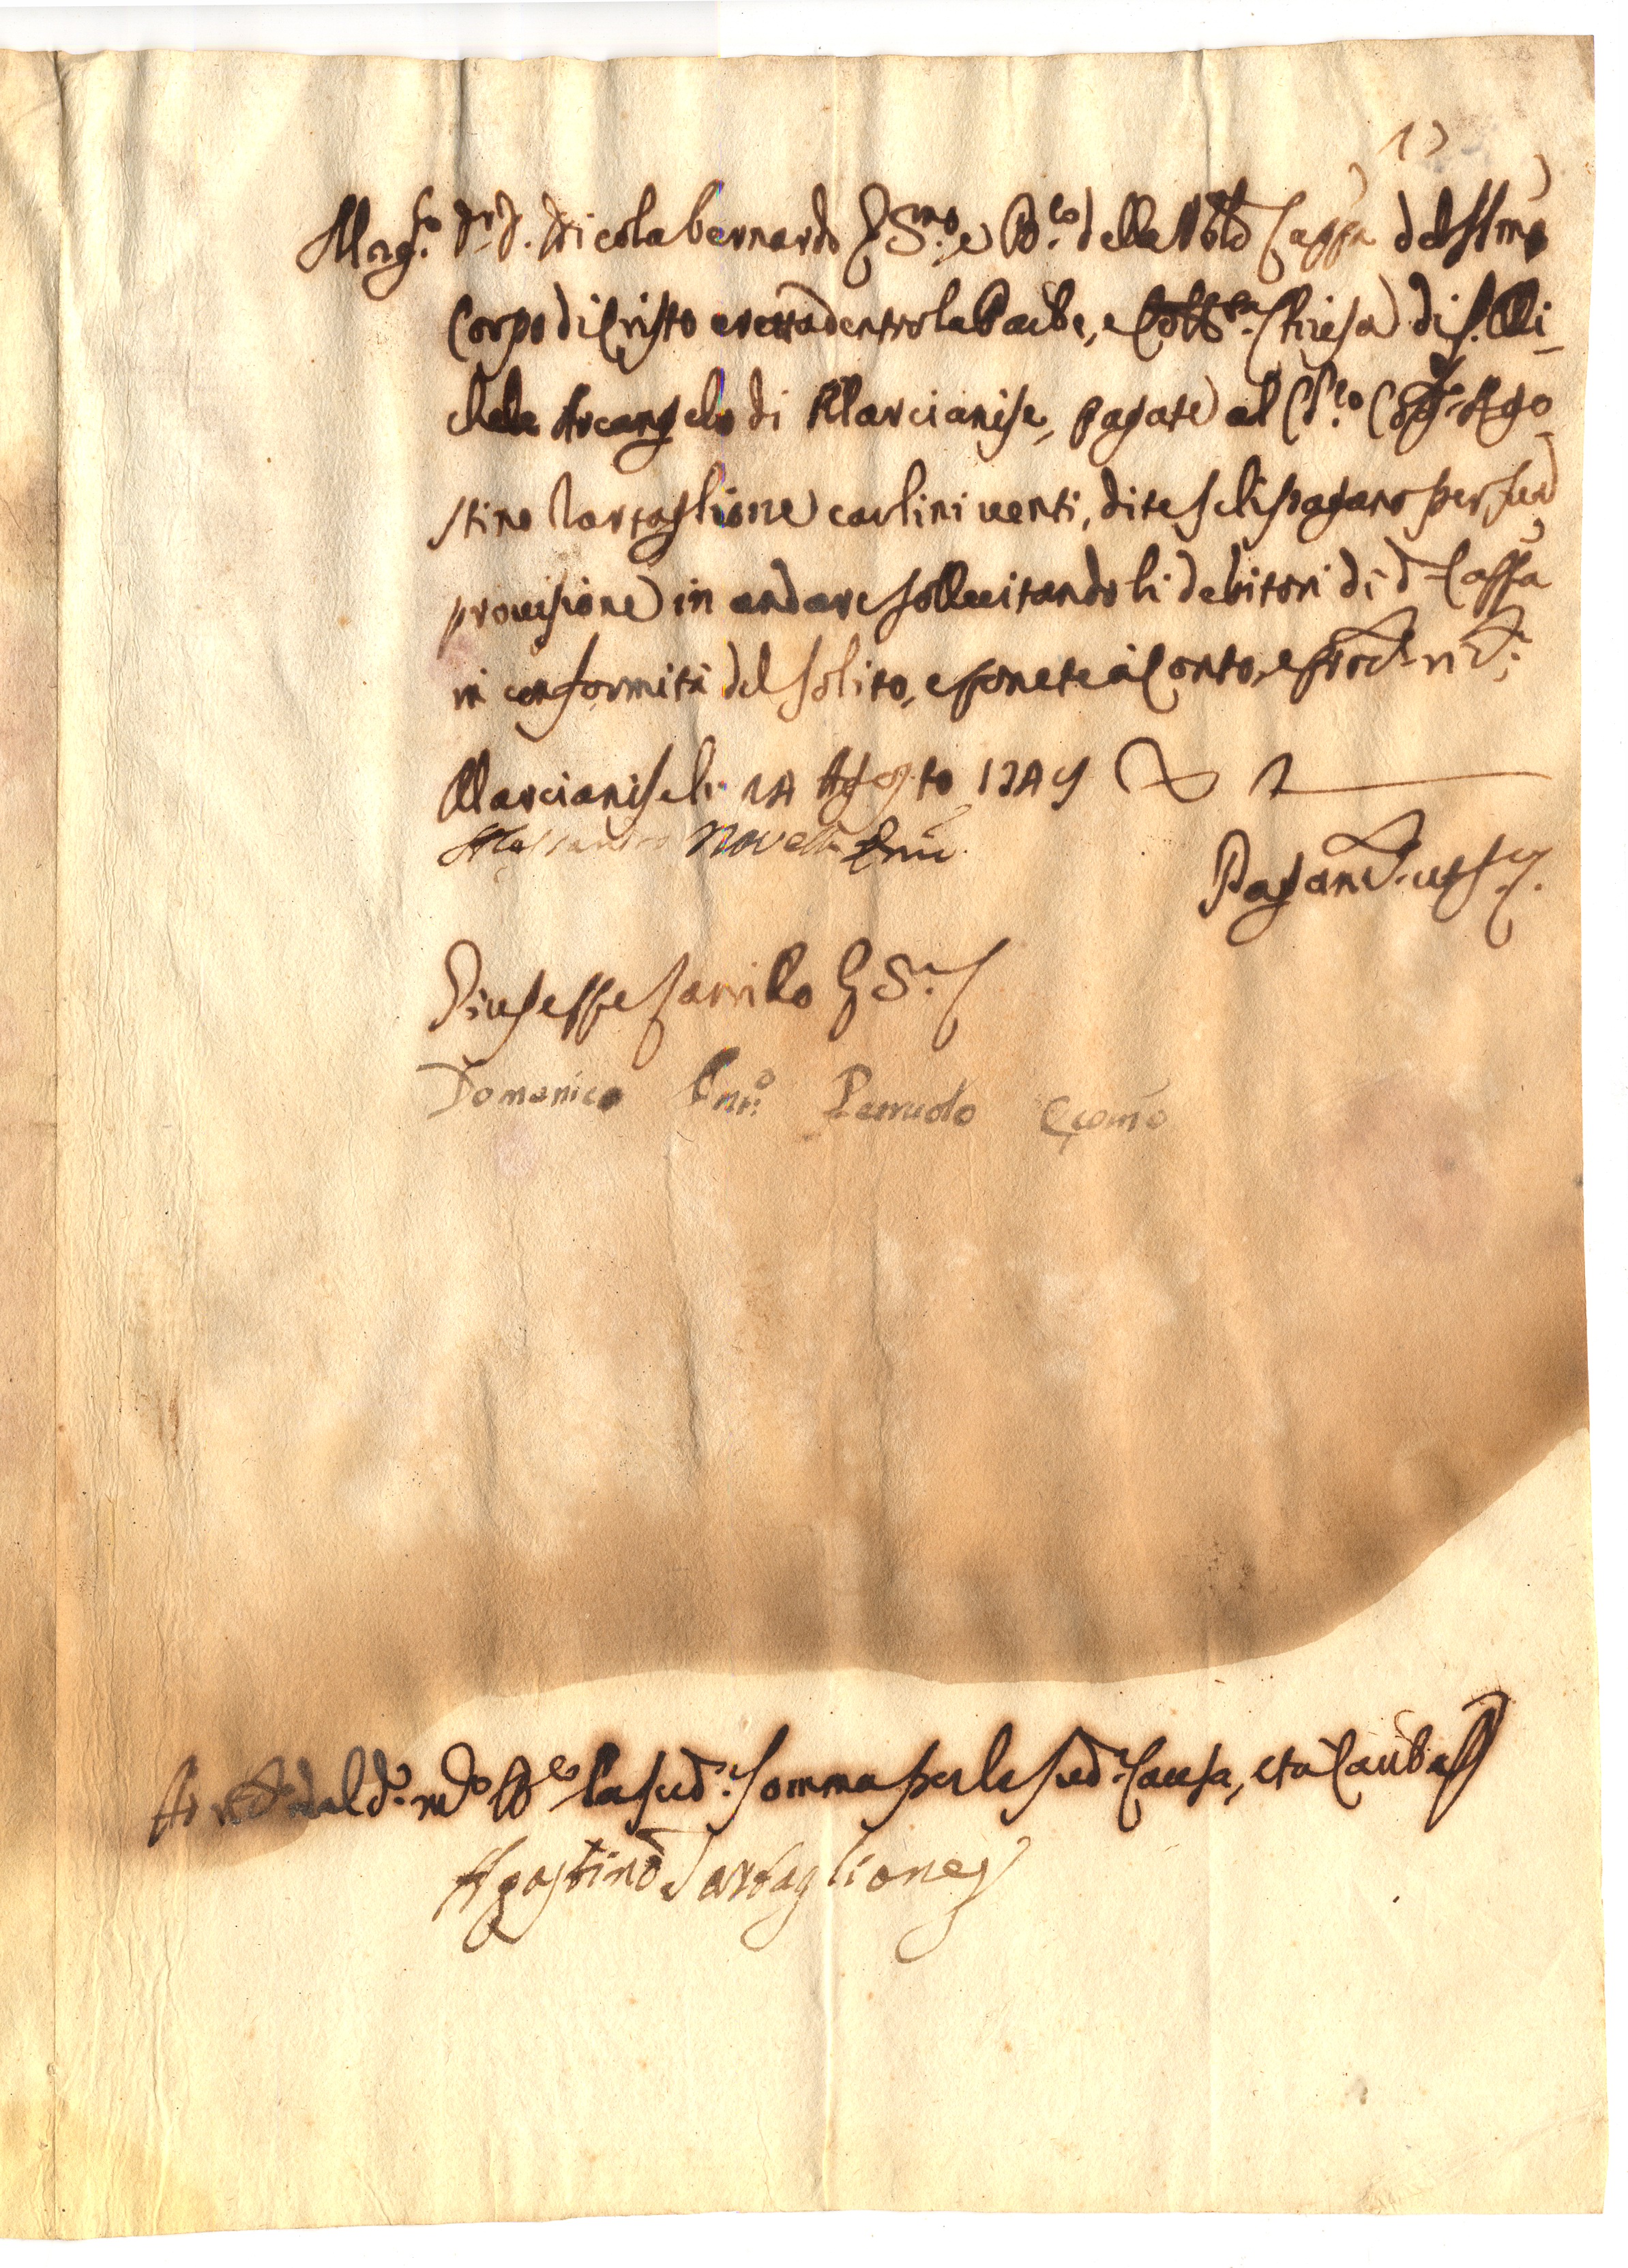 17
Mag.co Dr. D. Nicola bernardo E S.mo e B.co della Ven.d Cappa del SSmo
Corpo di Cristo eretta dentro la Parle, e Coll.ta Chiesa di S. Mi-
chele Arcangelo di Marcianise, pagate al Ch.co Cong. Ago-
stino Tartaglione carlini venti, dite seli pagano per sua
provisione in andare sollecitando li debitori di d.a Cappa
in conformità del solito, e ponete à Conto, e prod.
Marcianise li 14 Agosto 1749
Alessandro Novelli
Pagand.
Giuseppe Zarrillo E S.
Domenico Ant.o Perruolo Ecomo
Hò r.to dal d. m.co B.co la sud.a somma per la sud.a Causa, et à Cautela
Agostino Tartaglione